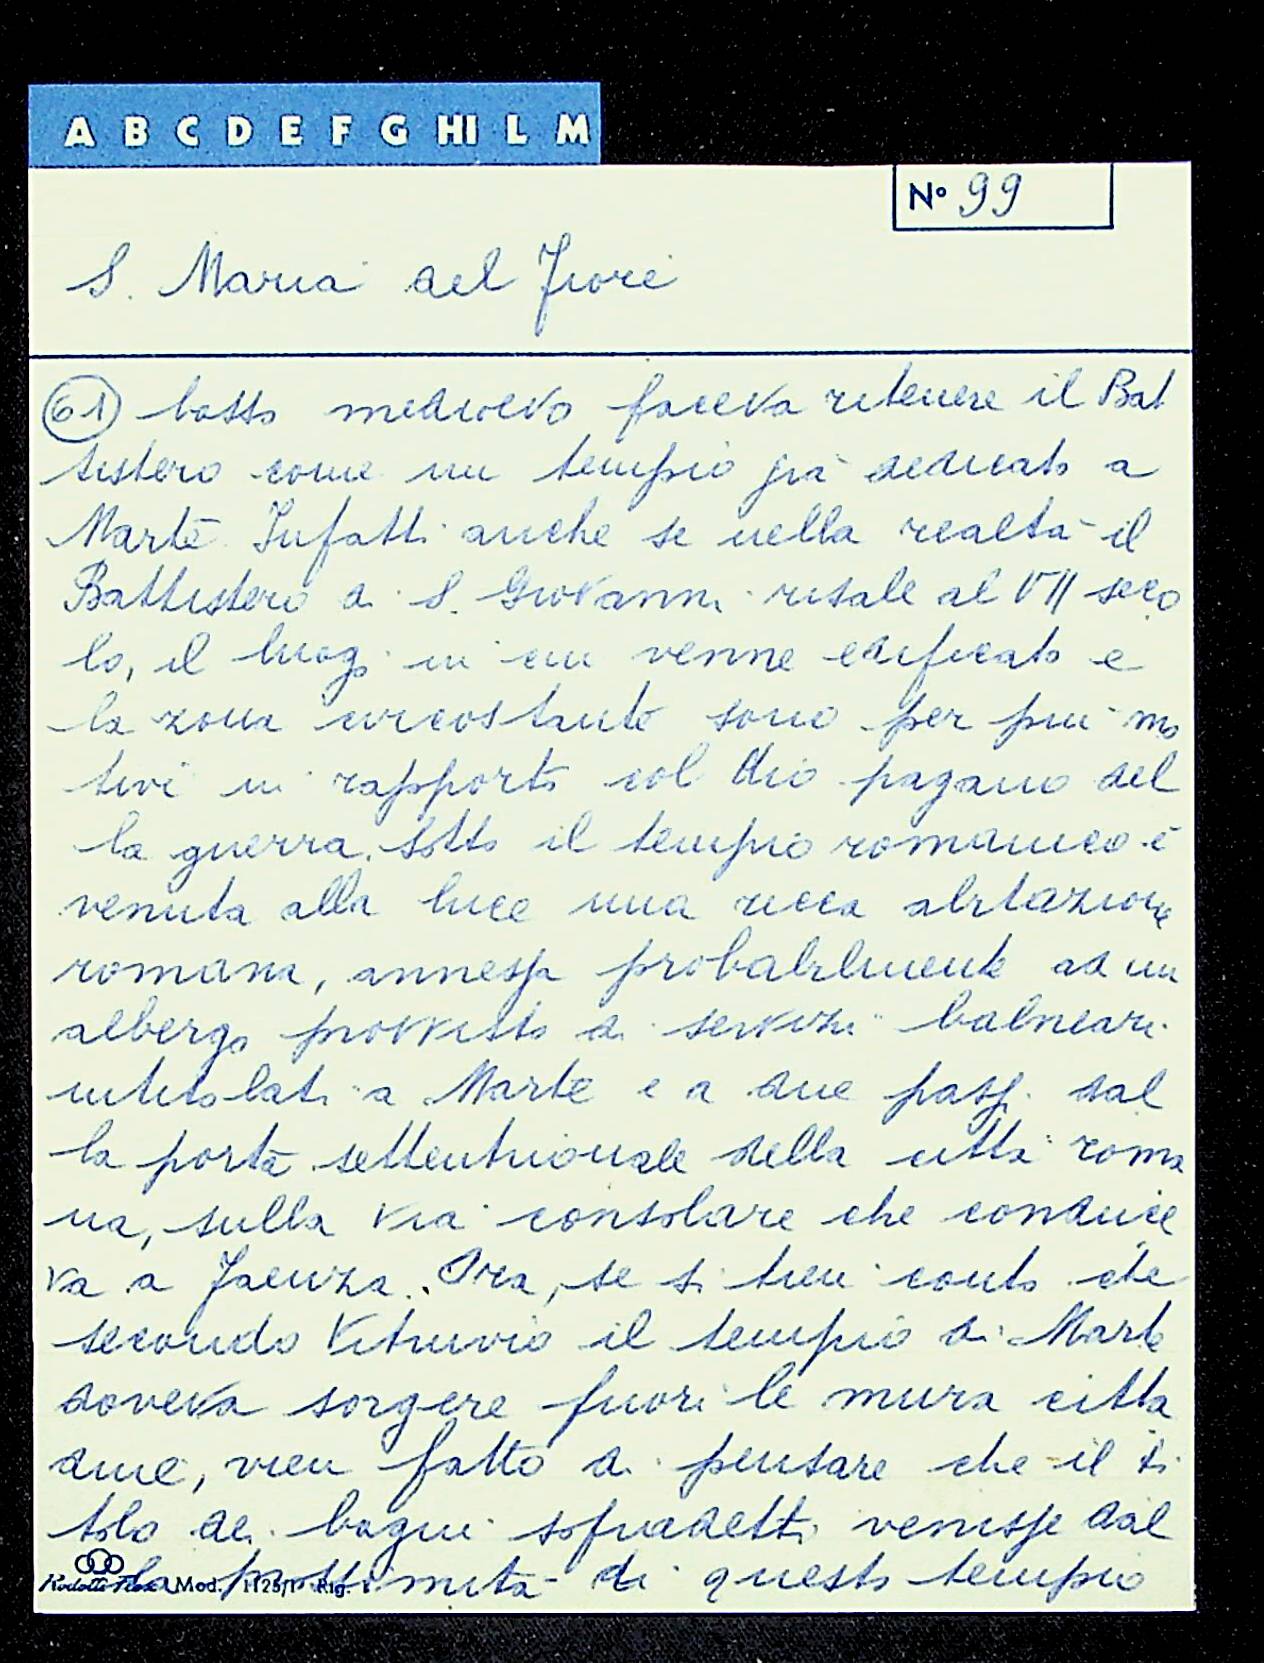 A B C D E F G HI L M
Nº 99
S. Maria del Fiore
61 basso medioevo faceva ritenere il Bat
tistero come un tempio già dedicato a
Marte. Infatti anche se nella realtà il
Battistero di S. Giovanni risale al VII seco
lo, il luogo in cui venne edificato e
la zona circostante sono per più mo
tivi in rapporto col dio pagano del
la guerra. Sotto il tempio romanico è
venuta alla luce una ricca abitazione
romana, annessa probabilmente ad un
albergo provvisto di servizi balneari
intitolati a Marte e a due passi dal
la porta settentrionale della città roma
na, sulla via consolare che conduce
va a Faenza. Ora, se si tien conto che
secondo Vitruvio il tempio di Marte
doveva sorgere fuori le mura citta
dine, vien fatto di pensare che il ti
tolo dei bagni sopradetti venisse dal
la prossimità di questo tempio
Mod. 1125/P Rig. 1